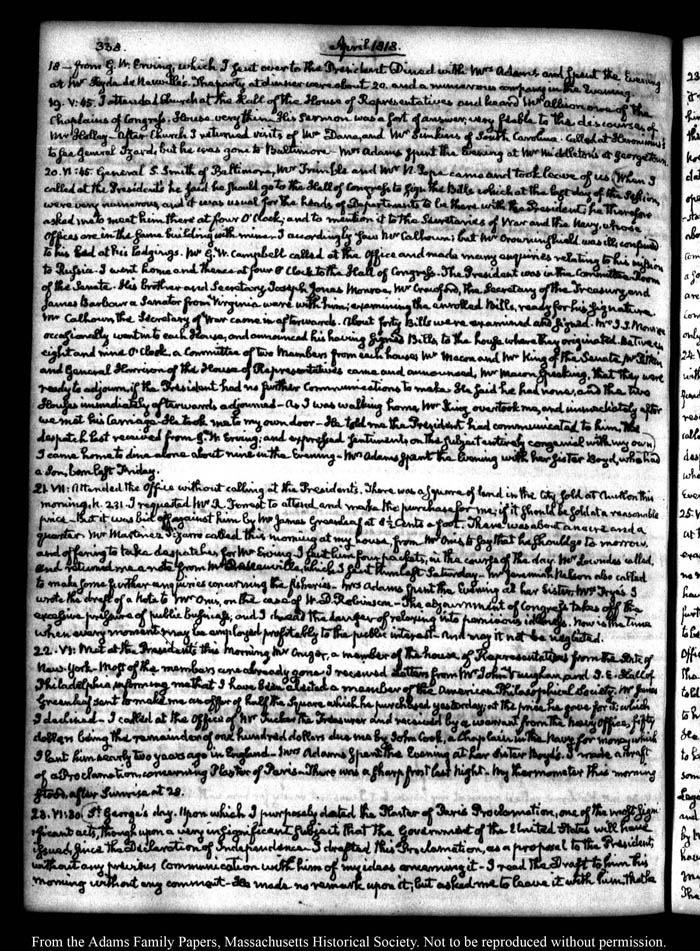 338. April 1818.
18 — from G. W. Erving, which I sent over to the President Dined with Mrs Adams and spent the Evening
at Mr Hyde de Neuville's. The party at dinner were about 20. and a numerous company in the Evening.
19. V:45. I attended Church at the Hall of the House of Representatives and heard Mr Allison one of the
Chaplains of Congress. House very thin. His Sermon was a sort of answer, very feeble to the discourses of
Mr Holley — After Church I returned visits of Mr Dana, and Mr Simkins of South Carolina. Called at
to see General Izard, but he was gone to Baltimore — Mrs Adams spent the Evening at Mr Middleton's at Georgetown.
20. VI:45. General S. Smith of Baltimore, Mr Trimble and Mr N. Pope came and took leave of us. When I
called at the Presidents he said he should go to the Hall of Congress to sign the Bills which at the last day of the Session
were very numerous, and it was usual for the heads of Departments to be there with the President; he therefore
asked me to meet him there at four O'Clock, and to mention it to the Secretaries of War and the Navy, whose
Offices are in the same building with mine — I accordingly saw Mr Calhoun; but Mr Crowninshield was ill confined
to his bed at his lodgings. Mr G. W. Campbell called at the Office and made many enquiries relating to his mission
to Russia — I went home and thence at four O'Clock to the Hall of Congress. The President was in the Committee Room
of the Senate. His brother and Secretary Joseph Jones Monroe, Mr Crawford, the Secretary of the Treasury and
James Barbour a Senator from Virginia were with him; examining the enrolled Bills, ready for his signature
Mr Calhoun the Secretary of War came in afterwards. About forty Bills were examined and signed. Mr J. J. Monroe
occasionally went in to each House, and announced his having signed Bills, to the house where they originated. Between
eight and nine O'Clock, a Committee of two Members from each house, Mr Macon and Mr King of the Senate, Mr
and General Harrison of the House of Representatives came and announced, Mr Macon speaking, that they were
ready to adjourn, if the President had no further Communications to make. He said he had none, and the two
Houses immediately afterwards adjourned — As I was walking home, Mr King overtook me, and immediately after
we met his Carriage. He took me to my own door — He told me the President had communicated to him, the
despatch last received from G. W. Erving; and expressed sentiments on the subject entirely congenial with my own;
I came home to dine alone about nine in the Evening — Mrs Adams spent the Evening with her Sister Boyd, who had
a Son, born last Friday.
21. VII: Attended the Office without calling at the Presidents. There was a Square of land in the City sold at Auction this
morning, N. 231. I requested Mr R. Forrest to attend and make the purchase for me, if it should be sold at a reasonable
price — but it was bid off against him by Mr James Greenleaf at cents a foot. There was about an acre and a
quarter. Mr Martinez Pizarro called this morning at my house, from Mr Onis to say that he should go to morrow,
and offering to take despatches for Mr Erving. I sent him four packets, in the course of the day. Mr Lowndes called,
and returned me a note from Mr de Neuville, which I sent him last Saturday — Mr Jeremiah Nelson also called
to make some further enquiries concerning the fisheries. Mrs Adams spent the Evening at her Sister, Mrs Frye's I
wrote the draft of a Note to Mr Onis, on the case of W. D. Robinson — The adjournment of Congress takes off the
excessive pressure of public business, and I dread the danger of relaxing into pernicious idleness. Now is the time
when every moment may be employed profitably to the public interest — And may it not be neglected.
22. VI: Met at the Presidents this morning Mr Cruger, a member of the house of Representatives from the State of
New-York. Most of the members are already gone. I received letters from Mr John Vaughan, and J. E. Hall of
Philadelphia informing me that I have been elected a member of the American Philosophical Society. Mr James
Greenleaf sent to make me an offer of half the Square which he purchased yesterday, at the price he gave for it; which
I declined — I called at the Office of Mr Tucker the Treasurer and received by a warrant from the Navy Office, fifty
dollars being the remainder of one hundred dollars due me by John Cook, a Chaplain in the Navy for money which
I lent him nearly two years ago in England — Mrs Adams spent the Evening at her Sister Boyd's. I made a draft
of a Proclamation concerning Plaster of Paris — There was a sharp frost last night — My thermometer this morning
stood, after Sunrise at 28.
23. VI:30. St George's day. Upon which I purposely dated the Plaster of Paris Proclamation, one of the most signi-
ficant acts, though upon a very insignificant Subject that the Government of the United States will have
issued, since the Declaration of Independence. I drafted this Proclamation, as a proposal to the President,
without any previous communication with him of my ideas concerning it — I read the Draft to him this
morning without any comment — He made no remark upon it, but asked me to leave it with him, that he
From the Adams Family Papers, Massachusetts Historical Society. Not to be reproduced without permission.